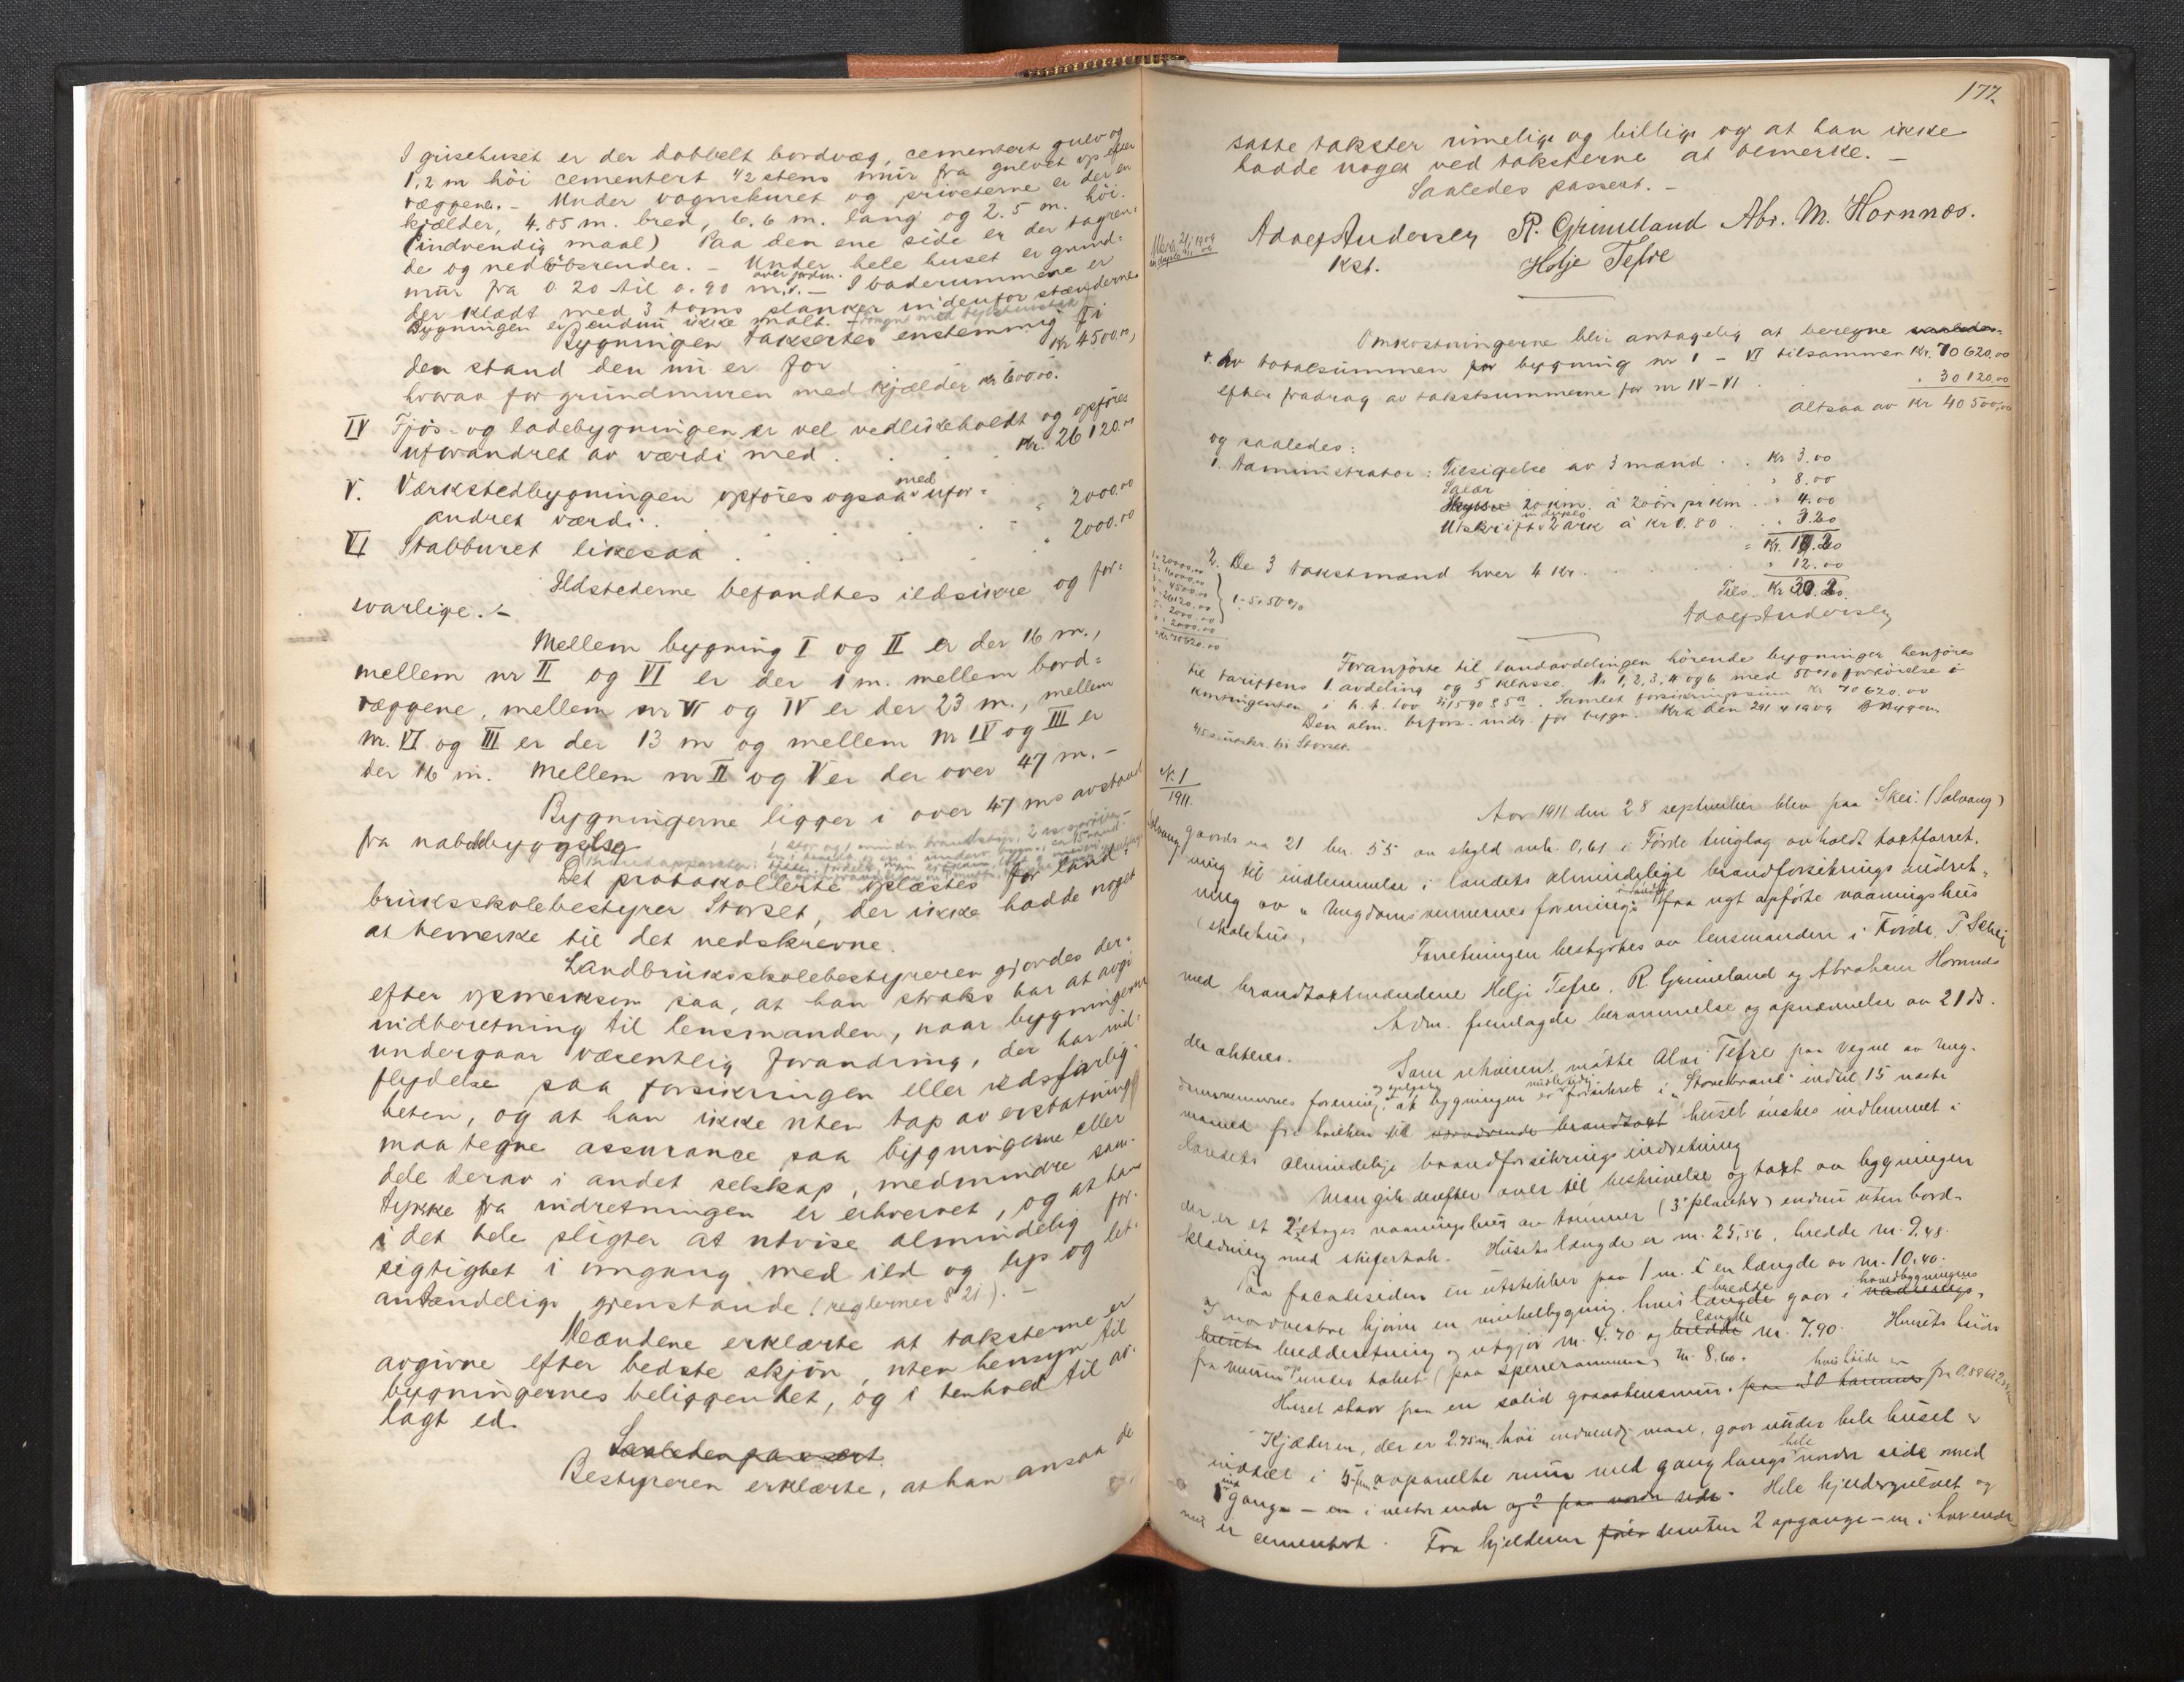 I grisehuset er der dobbelt bordvæg, cementert gulv og
1,2 m høi cementert 1/2 stens mur fra gulvet op efter
væggene. - Under vognskuret og priveterne er der en
kjælder, 4.85 m. bred, 6.6 m. lang og 2.5 m. høi.
(indvendig maal) Paa den ene side er der tagren-
de og nedløbsrender. - Under hele huset er grund-
mur fra 0.20 til 0.90 m. over jorden. - I baderummene er
der klædt med 3 toms planker indenfor stænderne
Bygningen er endnu ikke malt. -
Bygningen takseres enstemmig i
den stand den nu er for Kr 4500.00,
hvorav for grundmuren med kjælder kr 600.00.
IV Fjøs- og ladebygningen er vel vedlikeholdt og opføres
uforandret av værdi med . . . Kr. 26120.00
V. Værkstedbygningen opføres ogsaa med ufor-
andret værdi . . . " 2000.00
VI Stabburet likesaa . . . " 2000.00
Ildstederne befandtes ildsikre og for-
svarlige. -
Mellem bygning I og II er der 16 m.,
mellem nr II og VI er der 1 m. mellem bord-
væggene, mellem nr VI og IV er der 23 m., mellem
nr. VI og III er der 13 m og mellem nr IV og III er
der 16 m. Mellem nr II og V er der over 47 m. -
Bygningerne ligger i over 47 ms avstand
fra nabobebyggelse
Det protokollerte oplæstes for land-
bruksskolebestyrer Storset, der ikke hadde noget
at bemerke til det nedskrevne.
Landbruksskolebestyreren gjordes der-
efter opmerksom paa, at han straks har at avgi
indberetning til lensmanden, naar bygningerne
undergaar væsentlig forandring, der har ind-
flydelse paa forsikringen eller ildsfarlig-
heten, og at han ikke uten tap av erstatning
maa tegne assurance paa bygningerne eller
dele derav i andet selskap, medmindre sam-
tykke fra indretningen er erhvervet, og at han
i det hele pligter at utvise almindelig for-
sigtighet i omgang med ild og lys og let-
antændelige gjenstande (reglernes § 21). -
Mændene erklærte at taksterne er
avgivne efter bedste skjøn, uten hensyn til
bygningernes beliggenhet, og i henhold til av-
lagt ed.
Saaledes passert.
Bestyreren erklærte, at han ansaa de
177.
satte takster rimelige og billige og at han ikke
hadde noget ved taksterne at bemerke. -
Saaledes passert. -
Adolf Andersen R. Grimeland Abr. M. Hornnes.
kst. Helje Tefre
Omkostningerne blir antagelig at beregne saaledes:
Av totalsummen for bygning nr I - VI tilsammen Kr. 70620.00
efter fradrag av takstsummerne for nr IV - VI . . " 30120.00
altsaa av Kr 40500,00
og saaledes:
1. Administrator: Tilsigelse av 3 mænd . . Kr 3.00
Salær " 8.00
Skyds 20 km. à 20 øre pr km . " 4.00
Utskrift in duplo 2 ark à kr 0.80 . . " 3.20
= Kr. 18.20
2. De 3 takstmænd hver 4 kr . . . " 12.00
Tils. Kr 30.20.
Adolf Andersen
1 - 20000.00
2 - 16000.00
3 - 4500.00
4 - 26120.00
5 - 2000.00
6 - 2000.00
Kr 70620.00
Foranførte til landavdelingen hørende bygninger henføres
til tariffens 1. avdeling og 5 klasse. Nr 1, 2, 3, 4 og 6 med 50% forhøielse i
kontingenten i h. t. lov § 85a. Samlet forsikringssum kr 70620.00
Den alm. brfors. indr. for bygn. Kra den 29/4 1909
N. 1
1911.
Aar 1911 den 28 september blev paa Skei (Solvang)
Solvang gaards no 21 br. 55 av skyld mk. 0,61 i Førde tinglag avholdt taxtforret-
ning til indlemmelse i landets almindelige brandforsikrings indret-
ning av "Ungdomsvennernes forenings" paa nyt opførte vaaningshus
(skolehus.
Forretningen bestyrtes av lensmanden i Førde, P Schej
med brandtaxtmændene Helje Tefre, R. Grimeland og Abraham Hornnes
Adm. fremlagde berammelse og opnævnelse av 21 ds.
der akteres.
Som rekvirent møtte Olai Tefre paa vegne av Ung-
domsvennernes forening. og opgav at bygningen er midlertidig forsikret i "Storebrand" indtil 15 næste
maaned fra hvilken tid nærværende brandtaxt huset ønskes indlemmet i
landets almindelige brandforsikrings indretning
Man gik derefter over til beskrivelse og taxt av bygningen
der er et 2 etages vaaningshus av tømmer (3" planker) endnu uten bord-
klædning med skifertak. Husets længde er m. 25,56, bredde m. 9,48.
Paa facadesiden en utstikker paa 1 m. i en længde av m. 10,40.
I nordvestre hjørne en vinkelbygning. hvis længde bredde gaar i hovedbygningens
husets bredderetning og utgjør m. 4.70 og bredde længde m. 7.90. Husets høide
fra muren op under taket (paa sperrerommene) m. 8,60.
Huset staar paa en solid graastensmur. hvis høide er fra 0.89 til 2
Kjælderen, der er 2.75 m. høi indvendig maal, gaar under hele huset er
inddelt i 5 fem avpanelte rum med gang langs hele nordre side med
1 indgange - en i vestre ende og 2 paa nordre side. Hele kjeldergulvet og
mur er cementert. Fra kjelderen fører desuten 2 opgange - en i hver ende